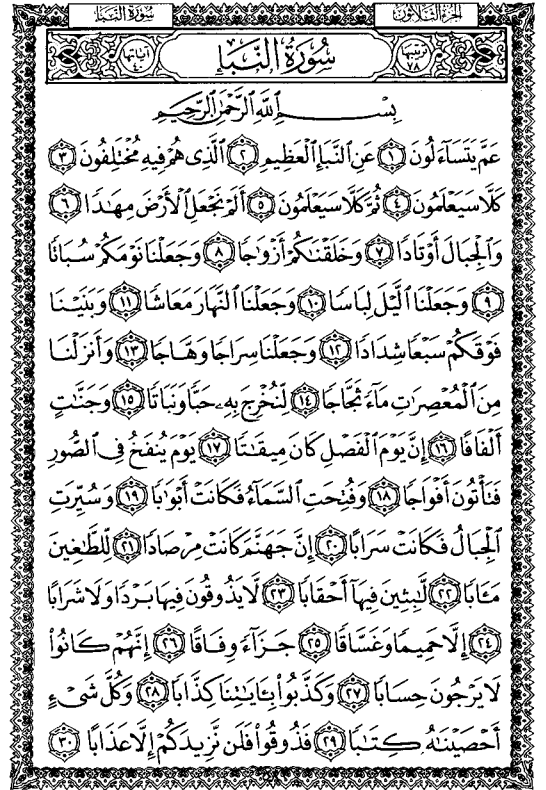 سُورَةُ النَّبَإِ الجزء الثلاثون
ترتيبها ٧٨ سُورَةُ النَّبَإِ آياتها ٤٠
بِسْمِ ٱللَّهِ ٱلرَّحْمَٰنِ ٱلرَّحِيمِ
عَمَّ يَتَسَآءَلُونَ ١ عَنِ ٱلنَّبَإِ ٱلْعَظِيمِ ٢ ٱلَّذِى هُمْ فِيهِ مُخْتَلِفُونَ ٣
كَلَّا سَيَعْلَمُونَ ٤ ثُمَّ كَلَّا سَيَعْلَمُونَ ٥ أَلَمْ نَجْعَلِ ٱلْأَرْضَ مِهَٰدًا ٦
وَٱلْجِبَالَ أَوْتَادًا ٧ وَخَلَقْنَٰكُمْ أَزْوَٰجًا ٨ وَجَعَلْنَا نَوْمَكُمْ سُبَاتًا
٩ وَجَعَلْنَا ٱلَّيْلَ لِبَاسًا ١٠ وَجَعَلْنَا ٱلنَّهَارَ مَعَاشًا ١١ وَبَنَيْنَا
فَوْقَكُمْ سَبْعًا شِدَادًا ١٢ وَجَعَلْنَا سِرَاجًا وَهَّاجًا ١٣ وَأَنزَلْنَا
مِنَ ٱلْمُعْصِرَٰتِ مَآءً ثَجَّاجًا ١٤ لِّنُخْرِجَ بِهِۦ حَبًّا وَنَبَاتًا ١٥ وَجَنَّٰتٍ
أَلْفَافًا ١٦ إِنَّ يَوْمَ ٱلْفَصْلِ كَانَ مِيقَٰتًا ١٧ يَوْمَ يُنفَخُ فِى ٱلصُّورِ
فَتَأْتُونَ أَفْوَاجًا ١٨ وَفُتِحَتِ ٱلسَّمَآءُ فَكَانَتْ أَبْوَٰبًا ١٩ وَسُيِّرَتِ
ٱلْجِبَالُ فَكَانَتْ سَرَابًا ٢٠ إِنَّ جَهَنَّمَ كَانَتْ مِرْصَادًا ٢١ لِّلطَّٰغِينَ
مَـَٔابًا ٢٢ لَّٰبِثِينَ فِيهَآ أَحْقَابًا ٢٣ لَّا يَذُوقُونَ فِيهَا بَرْدًا وَلَا شَرَابًا
٢٤ إِلَّا حَمِيمًا وَغَسَّاقًا ٢٥ جَزَآءً وِفَاقًا ٢٦ إِنَّهُمْ كَانُوا۟
لَا يَرْجُونَ حِسَابًا ٢٧ وَكَذَّبُوا۟ بِـَٔايَٰتِنَا كِذَّابًا ٢٨ وَكُلَّ شَىْءٍ
أَحْصَيْنَٰهُ كِتَٰبًا ٢٩ فَذُوقُوا۟ فَلَن نَّزِيدَكُمْ إِلَّا عَذَابًا ٣٠